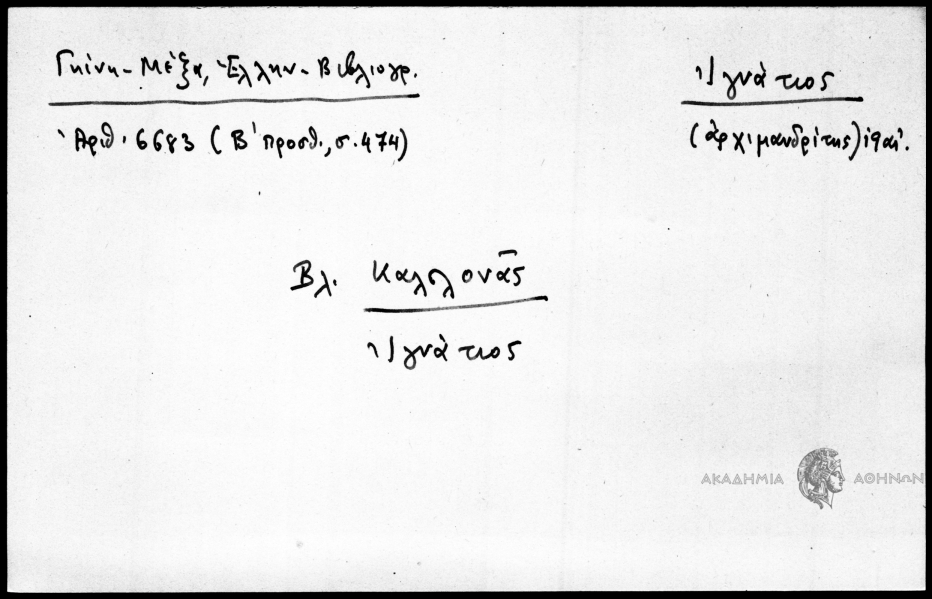 Γκίνη-Μέξα, Ἑλλην. Βιβλιογρ.
Ἰγνάτιος
Ἀριθ. 6683 (Β' προσθ., σ. 474)
(ἀρχιμανδρίτης)
Βλ. Καλλονᾶς
Ἰγνάτιος
ΑΚΑΔΗΜΙΑ ΑΘΗΝΩΝ